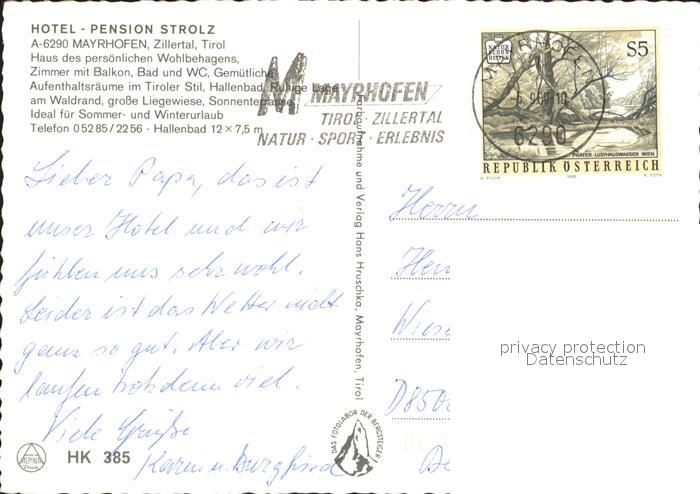 HOTEL - PENSION STROLZ
A-6290 MAYRHOFEN, Zillertal, Tirol
Haus des persönlichen Wohlbehagens,
Zimmer mit Balkon, Bad und WC, Gemütliche
Aufenthaltsräume im Tiroler Stil, Hallenbad, Ruhige Lage
am Waldrand, große Liegewiese, Sonnenterasse
Ideal für Sommer- und Winterurlaub
Telefon 05285/2256 - Hallenbad 12×7,5 m
MAYRHOFEN
TIROL · ZILLERTAL
NATUR · SPORT · ERLEBNIS
MAYRHOFEN
6290
NATUR
SCHÖN
S5
PRATER-LUSTHAUSWASSER WIEN
REPUBLIK ÖSTERREICH
Lieber Papa, das ist
unser Hotel und wir
fühlen uns sehr wohl.
Leider ist das Wetter nicht
ganz so gut. Aber wir
laufen trotzdem viel.
Viele Grüße
Karin u. Burgfried
Farbaufnahme und Verlag Hans Hruschka, Mayrhofen, Tirol
Herrn
D850
privacy protection
Datenschutz
DAS FOTOLABOR DER BERGSTEIGER
ALPINA
HK 385